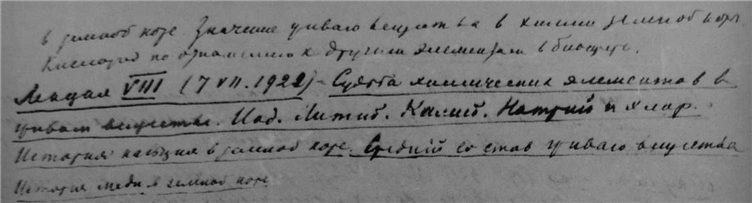 в земной коре. Значение живого вещества в химии земной коры
Кислород по отношению к другим элементам в биосфере.
Лекция VIII (7 VII. 1922) - Судьба химических элементов в
живом веществе. Иод. Литий. Калий. Натрий и хлор.
История кальция в земной коре. Средний состав живого вещества
История меди в земной коре